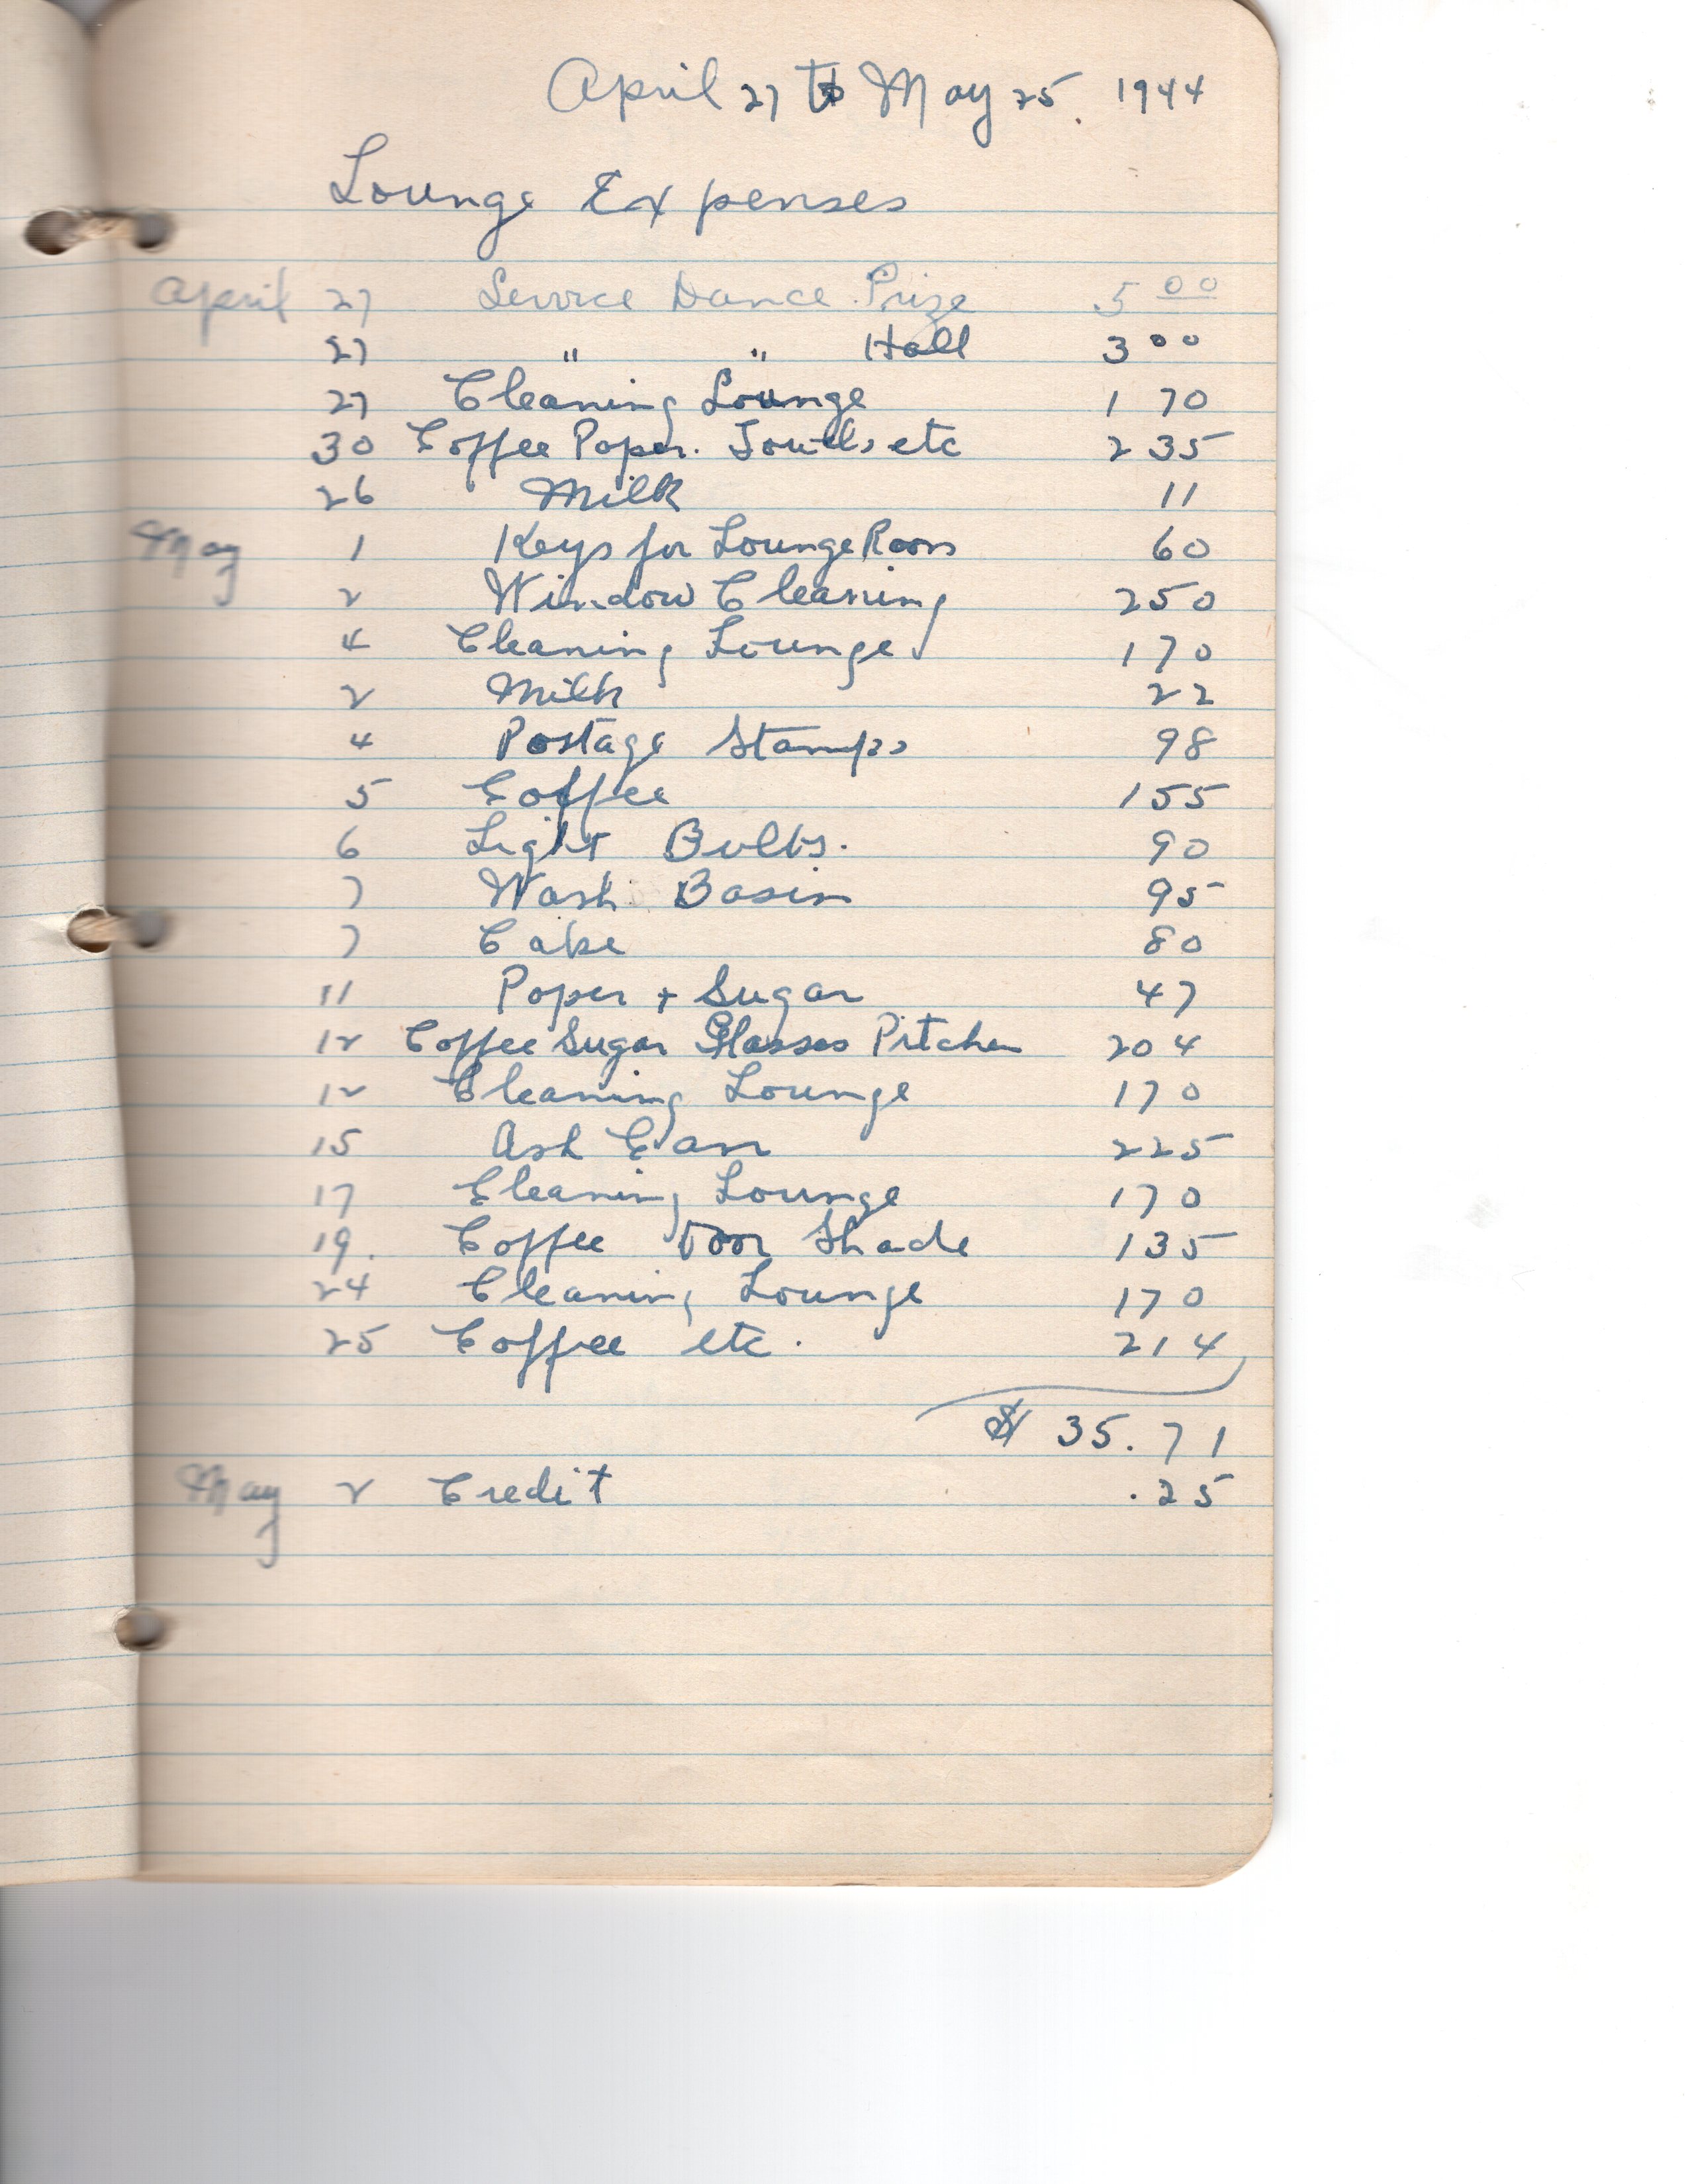 April 27 to May 25. 1944
Lounge Expenses
April 27 Service Dance Prize 5 00
27 " " Hall 3 00
27 Cleaning Lounge 1 70
30 Coffee Paper. Towels etc 2 35
26 Milk 11
May 1 Keys for Lounge Room 60
2 Window Cleaning 250
4 Cleaning Lounge 170
2 Milk 22
4 Postage Stamps 98
5 Coffee 155
6 Light Bulbs. 90
7 Wash Basin 95
7 Cake 80
11 Paper + Sugar 47
12 Coffee Sugar Glasses Pitcher 204
12 Cleaning Lounge 170
15 Ash Can 225
17 Cleaning Lounge 170
19. Coffee Door Shade 135
24 Cleaning Lounge 170
25 Coffee etc. 214
$ 35.71
May 2 Credit .25